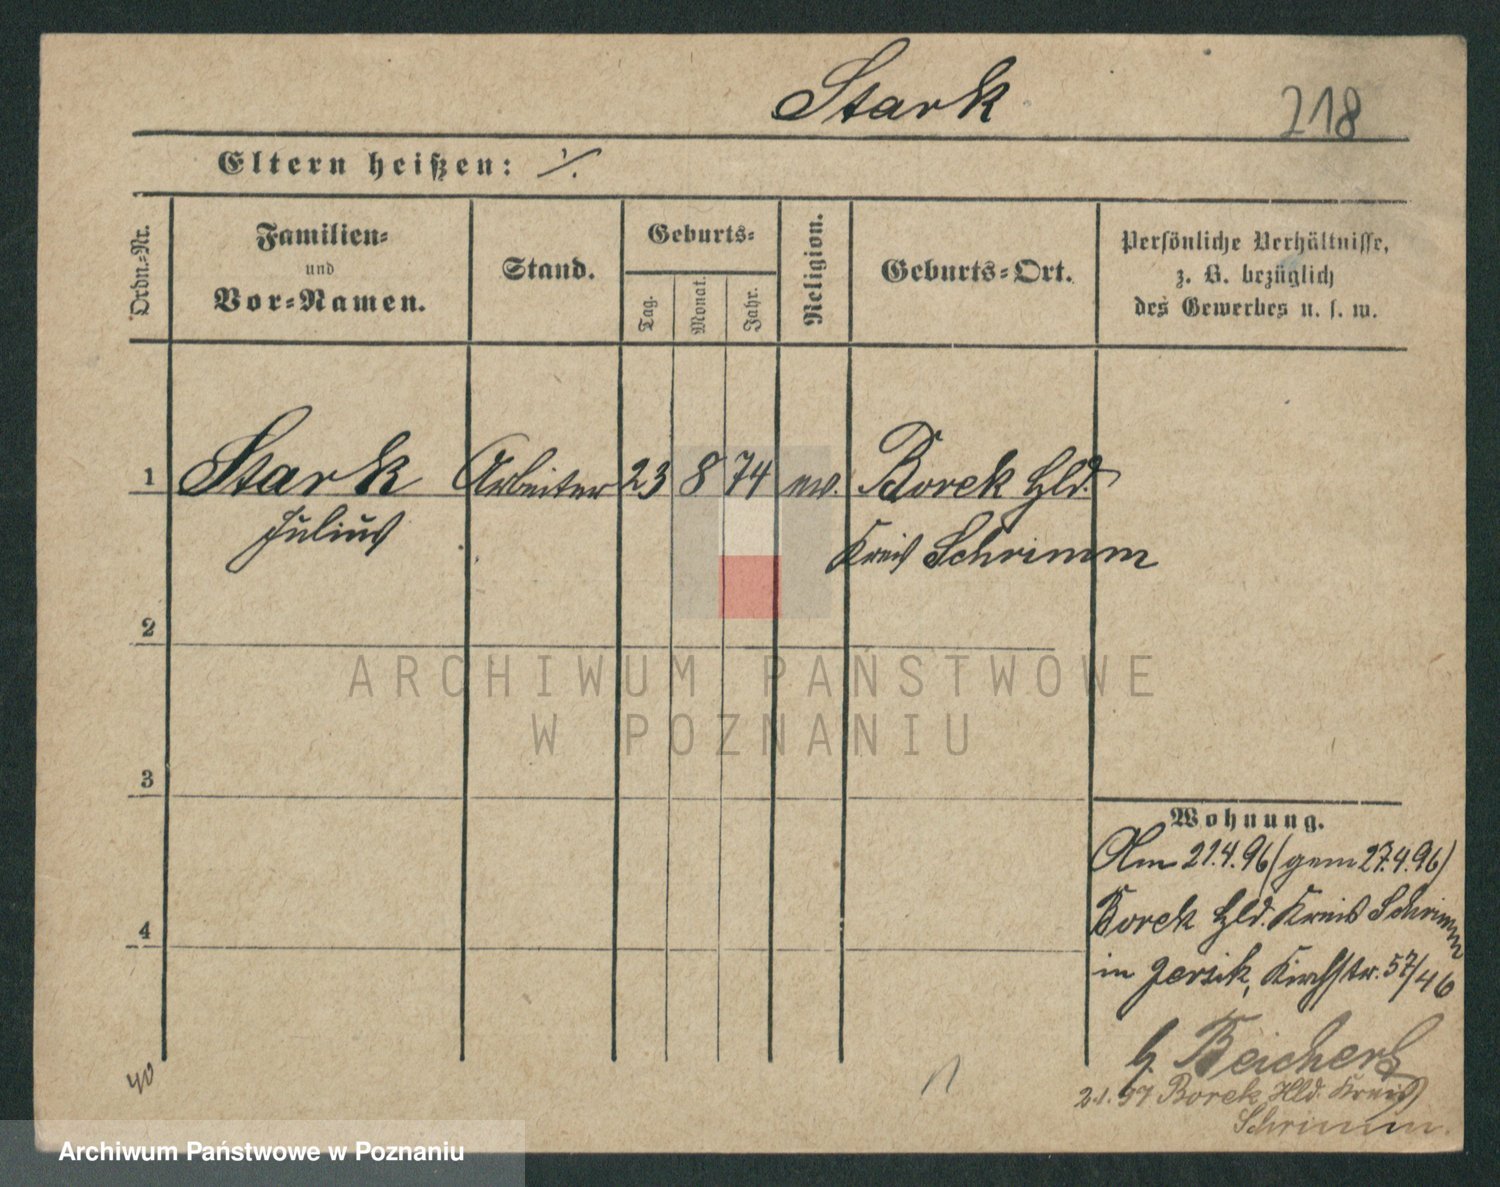 Stark
218
Eltern heißen: ⁒
Ordn.-Nr.
Familien-
und
Vor-Namen.
Stand.
Geburts-
Tag.
Monat.
Jahr.
Religion.
Geburts-Ort.
Persönliche Verhältnisse,
z. B. bezüglich
des Gewerbes u. s. w.
1 Stark Arbeiter 23 8 74 ev. Borek Hld.
Julius Kreis Schrimm
2
3
4
Wohnung.
Am 21.4.96 (gem 27.4.96)
Borek Hld. Kreis Schrimm
in Jersik, Kirchstr. 57/46
b. Beichert
2.1.97 Borek Hld. Kreis
Schrimm.
40
ARCHIWUM PAŃSTWOWE
W POZNANIU
Archiwum Państwowe w Poznaniu